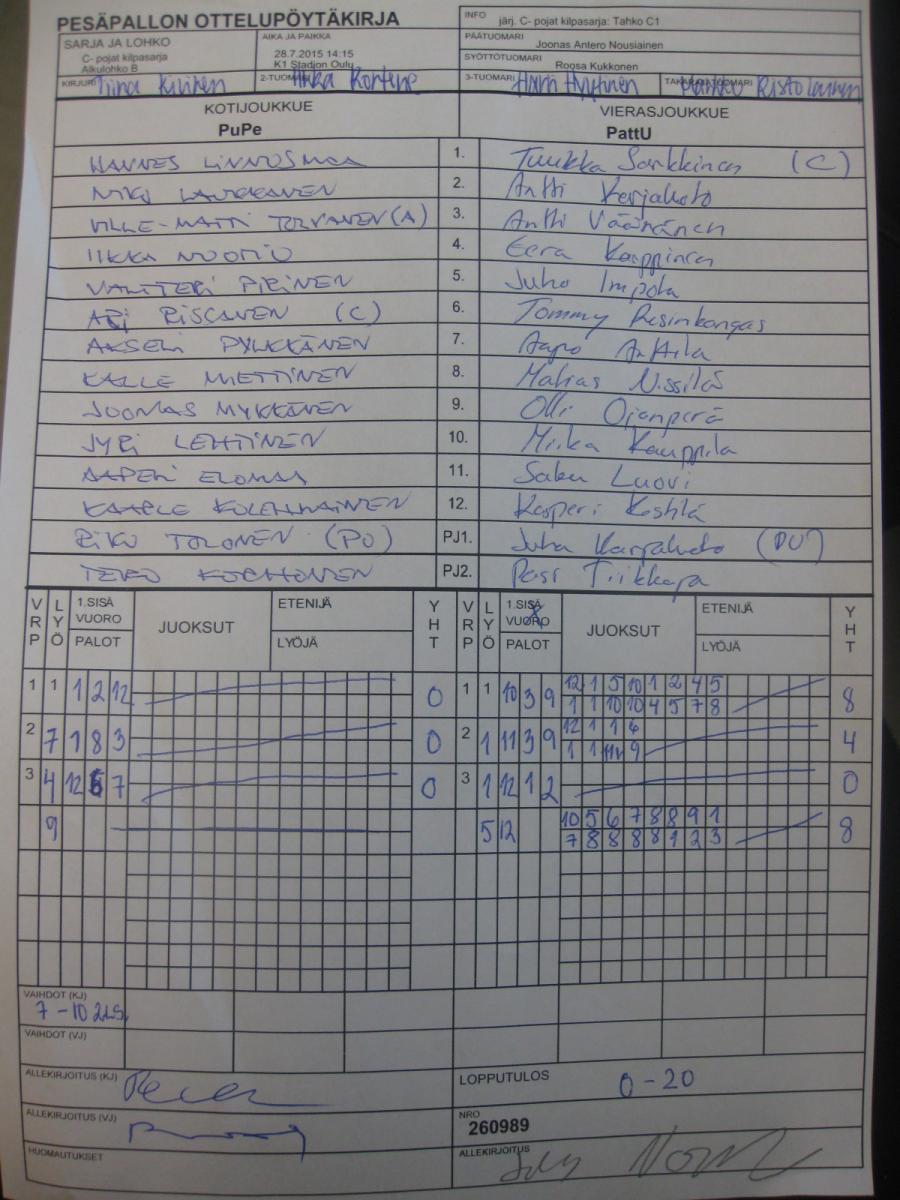 PESÄPALLON OTTELUPÖYTÄKIRJA
INFO järj. C- pojat kilpasarja: Tahko C1
SARJA JA LOHKO
C- pojat kilpasarja
Alkulohko B
AIKA JA PAIKKA
28.7.2015 14:15
K1 Stadion Oulu
PÄÄTUOMARI
Joonas Antero Nousiainen
SYÖTTÖTUOMARI
Roosa Kukkonen
KIRJURI Tiina 2-TUOMARI 3-TUOMARI Harri TAKARAJATUOMARI
KOTIJOUKKUE VIERASJOUKKUE
PuPe PattU
HANNES LINNOSMAA 1. Tuukka Sarkkinen (C)
NIKO LAUKKANEN 2. Antti Karjaluoto
VILLE-MATTI TORVANEN (A) 3. Antti Väänänen
IIKKA NUOTIO 4. Eera Kauppinen
VALTTERI PIRINEN 5. Juho Impola
ARI RISSANEN (C) 6. Tommy Pesinkangas
AKSELI PYLKKÄNEN 7. Aapo Anttila
KALLE MIETTINEN 8. Matias Nissilä
JOONAS MYKKÄNEN 9. Olli Ojanperä
JYRI LEHTINEN 10. Miika Kauppila
AAPELI ELOMAA 11. Saku Luovi
KAAPLE KOLEHMAINEN 12. Kasperi Koskela
RIKU TOLONEN (PJ) PJ1. Juha Karjaluoto (PJ)
TERO KORHONEN PJ2. Pasi Tiikkaja
VRP LYÖ 1.SISÄ VUORO PALOT JUOKSUT ETENIJÄ LYÖJÄ YHT VRP LYÖ 1.SISÄ VUORO PALOT JUOKSUT ETENIJÄ LYÖJÄ YHT
1 1 1 2 12 0 1 1 10 3 9 12 1 5 10 1 2 4 5 8
1 1 10 10 4 5 7 8
2 7 1 8 3 0 2 1 11 3 9 12 1 1 6 4
1 1 11 9
3 4 12 6 7 0 3 1 12 1 2 0
9 5 12 10 5 6 7 8 8 9 1 8
7 8 8 8 8 1 2 3
VAIHDOT (KJ)
7-10 2ls.
VAIHDOT (VJ)
ALLEKIRJOITUS (KJ) LOPPUTULOS 0-20
ALLEKIRJOITUS (VJ) NRO
260989
HUOMAUTUKSET ALLEKIRJOITUS